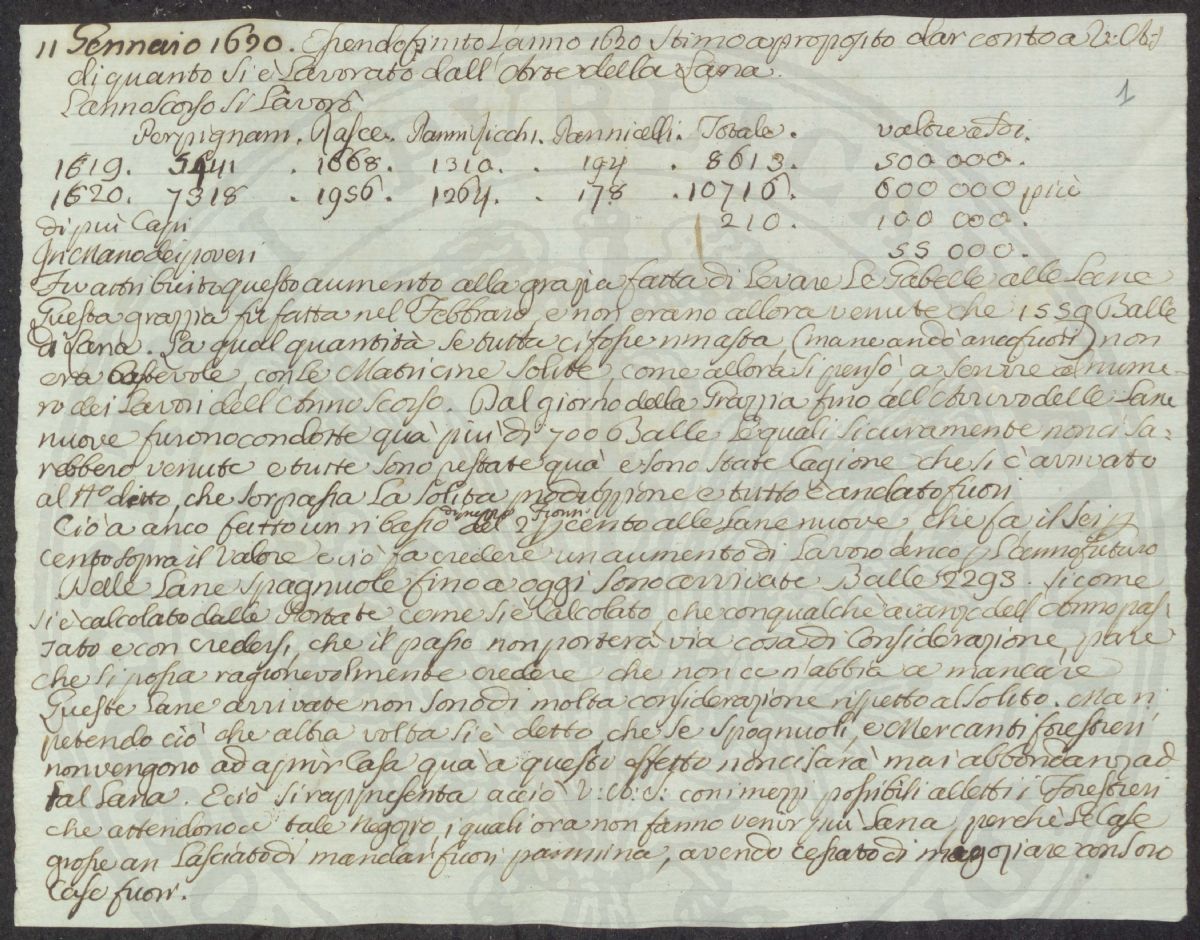 1
11 Gennaio 1620. Essendo finito L'anno 1620 stimo a proposito dar conto a V: A: S
di quanto si è Lavorato dall'Arte della Lana.
L'anno scorso si Lavorò
Perpignani. Rasce. Panni ricchi. Pannicelli. Totale. valore a di.
1619. 5441 . 1668. 1310. . 194 . 8613. 500 000.
1620. 7318 . 1956. 1264. . 178 . 10716. 600 000 più
di più Capi 210. 100 000.
In Mano dei poveri 55 000.
Fu attribuito questo aumento alla grazia fatta di Levare Le Gabelle alle Lane
Questa grazzia fu fatta nel Febbraro, e non erano allora venute che 1559 Balle
di Lana. La qual quantità se tutta ci fosse rimasta (ma ne andò anco fuori) non
era bastevole, con Le Matricine solite, come allora si pensò a servire al nume-
ro dei Lavori dell'Anno scorso. Dal giorno della Grazzia fino all'Arrivo delle Lane
nuove furono condotte quà più di 700 Balle, Le quali sicuramente non ci sa-
rebbero venute e tutte sono restate quà e sono state Cagione che si è arrivato
al N.o detto, che sorpassa La solita produzzione e tutto è andato fuori
Ciò à anco fatto un ribasso di prezzo del 2 p cento alle Lane nuove, che fa il sei p
cento sopra il Valore e ciò fa credere un aumento di Lavoro anco p L'anno futuro
Delle Lane spagnuole fino a oggi sono arrivate Balle 2293. Sicome
si è calcolato dalle Portate come si è Calcolato, che con qualche avanzo dell'Anno pas-
sato e con credersi, che il passo non porterà via cosa di Considerazione, pare
che si possa ragionevolmente credere che non ce n'abbia a mancare
Queste Lane arrivate non sono di molta considerazione rispetto al solito. Ma ri,
petendo ciò che altra volta si è detto, che se spagnuoli, e Mercanti forestieri
non vengono ad aprir Casa quà a questo effetto non ci sarà mai abbondanza d
tal Lana. E ciò si rappresenta acciò V: A: S: con i mezzi possibili alletti i Forestieri
che attendono a tale Negozio, i quali ora non fanno venir più Lana, perchè Le Case
grosse an Lasciato di mandar fuori pannina, avendo cessato di negoziare con Loro
Case fuori.